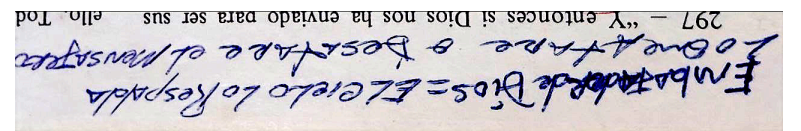 Embajador de Dios = EL Cielo Lo Respalda
Lo que Atare o Desatare el Mensajero
297 — “Y entonces si Dios nos ha enviado para ser sus
ello. Tod